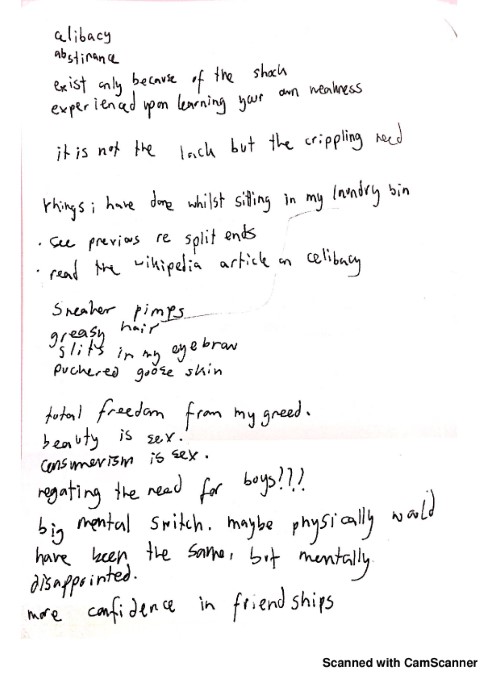 alibacy
abstinance
exist only because of the shock
experienced upon learning your own weakness
it is not the lack but the crippling need
things i have done whilst sitting in my laundry bin
• see previous re split ends
• read the wikipedia article on celibacy
Sneaker pimps
greasy hair
slits in my eyebrow
puckered goose skin
total freedom from my greed.
beauty is sex.
consumerism is sex.
regating the need for boys!!!
big mental switch. maybe physically would
have been the same, but mentally
disappointed.
more confidence in friendships
Scanned with CamScanner